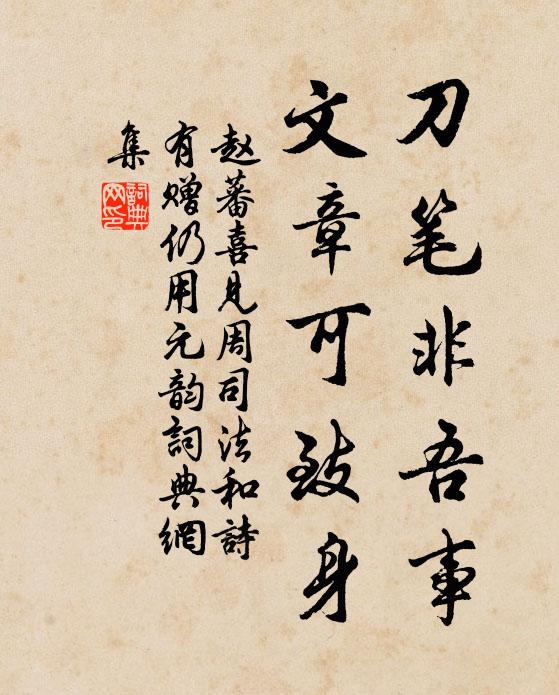 刀笔非吾事
文章可致身
赵蕃喜見周司法和詩
有赠仍用元韵詞典網
集
詞典
网印